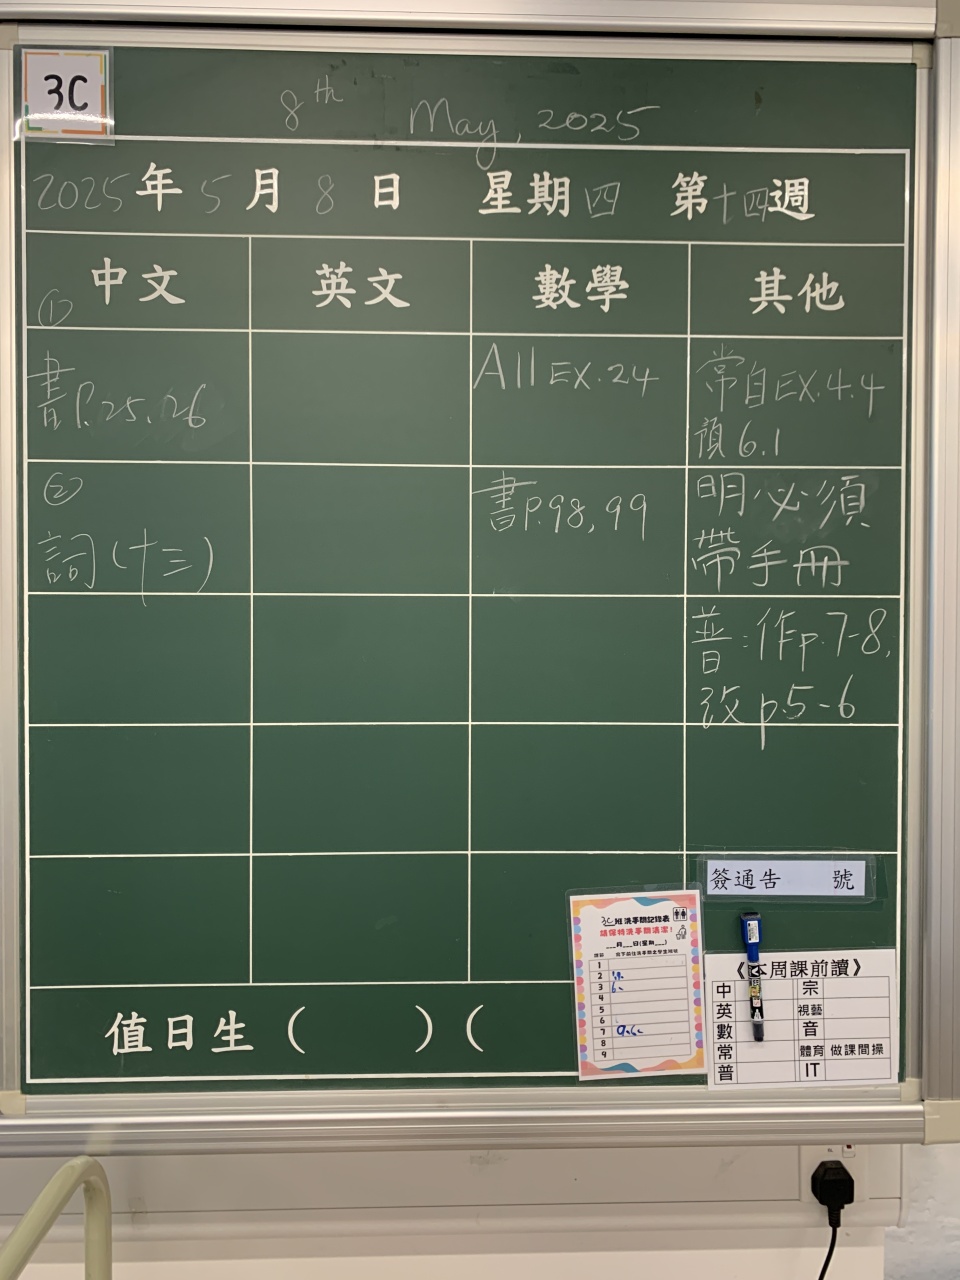 3C
8th May, 2025
2025年5月8日 星期四 第十四週
中文 英文 數學 其他
①
書P.25.26
All EX.24
常自EX.4.4
預6.1
②
詞(十三)
書P.98,99
明必須
帶手冊
普:作p.7-8,
改p.5-6
簽通告 號
值日生( )(
3C班洗手間記錄表
請保持洗手間清潔!
___月___日(星期___)
1
2
3
4
5
6
7
8
9
《本周課前讀》
中 宗
英 視藝
數 音
常 體育 做課間操
普 IT